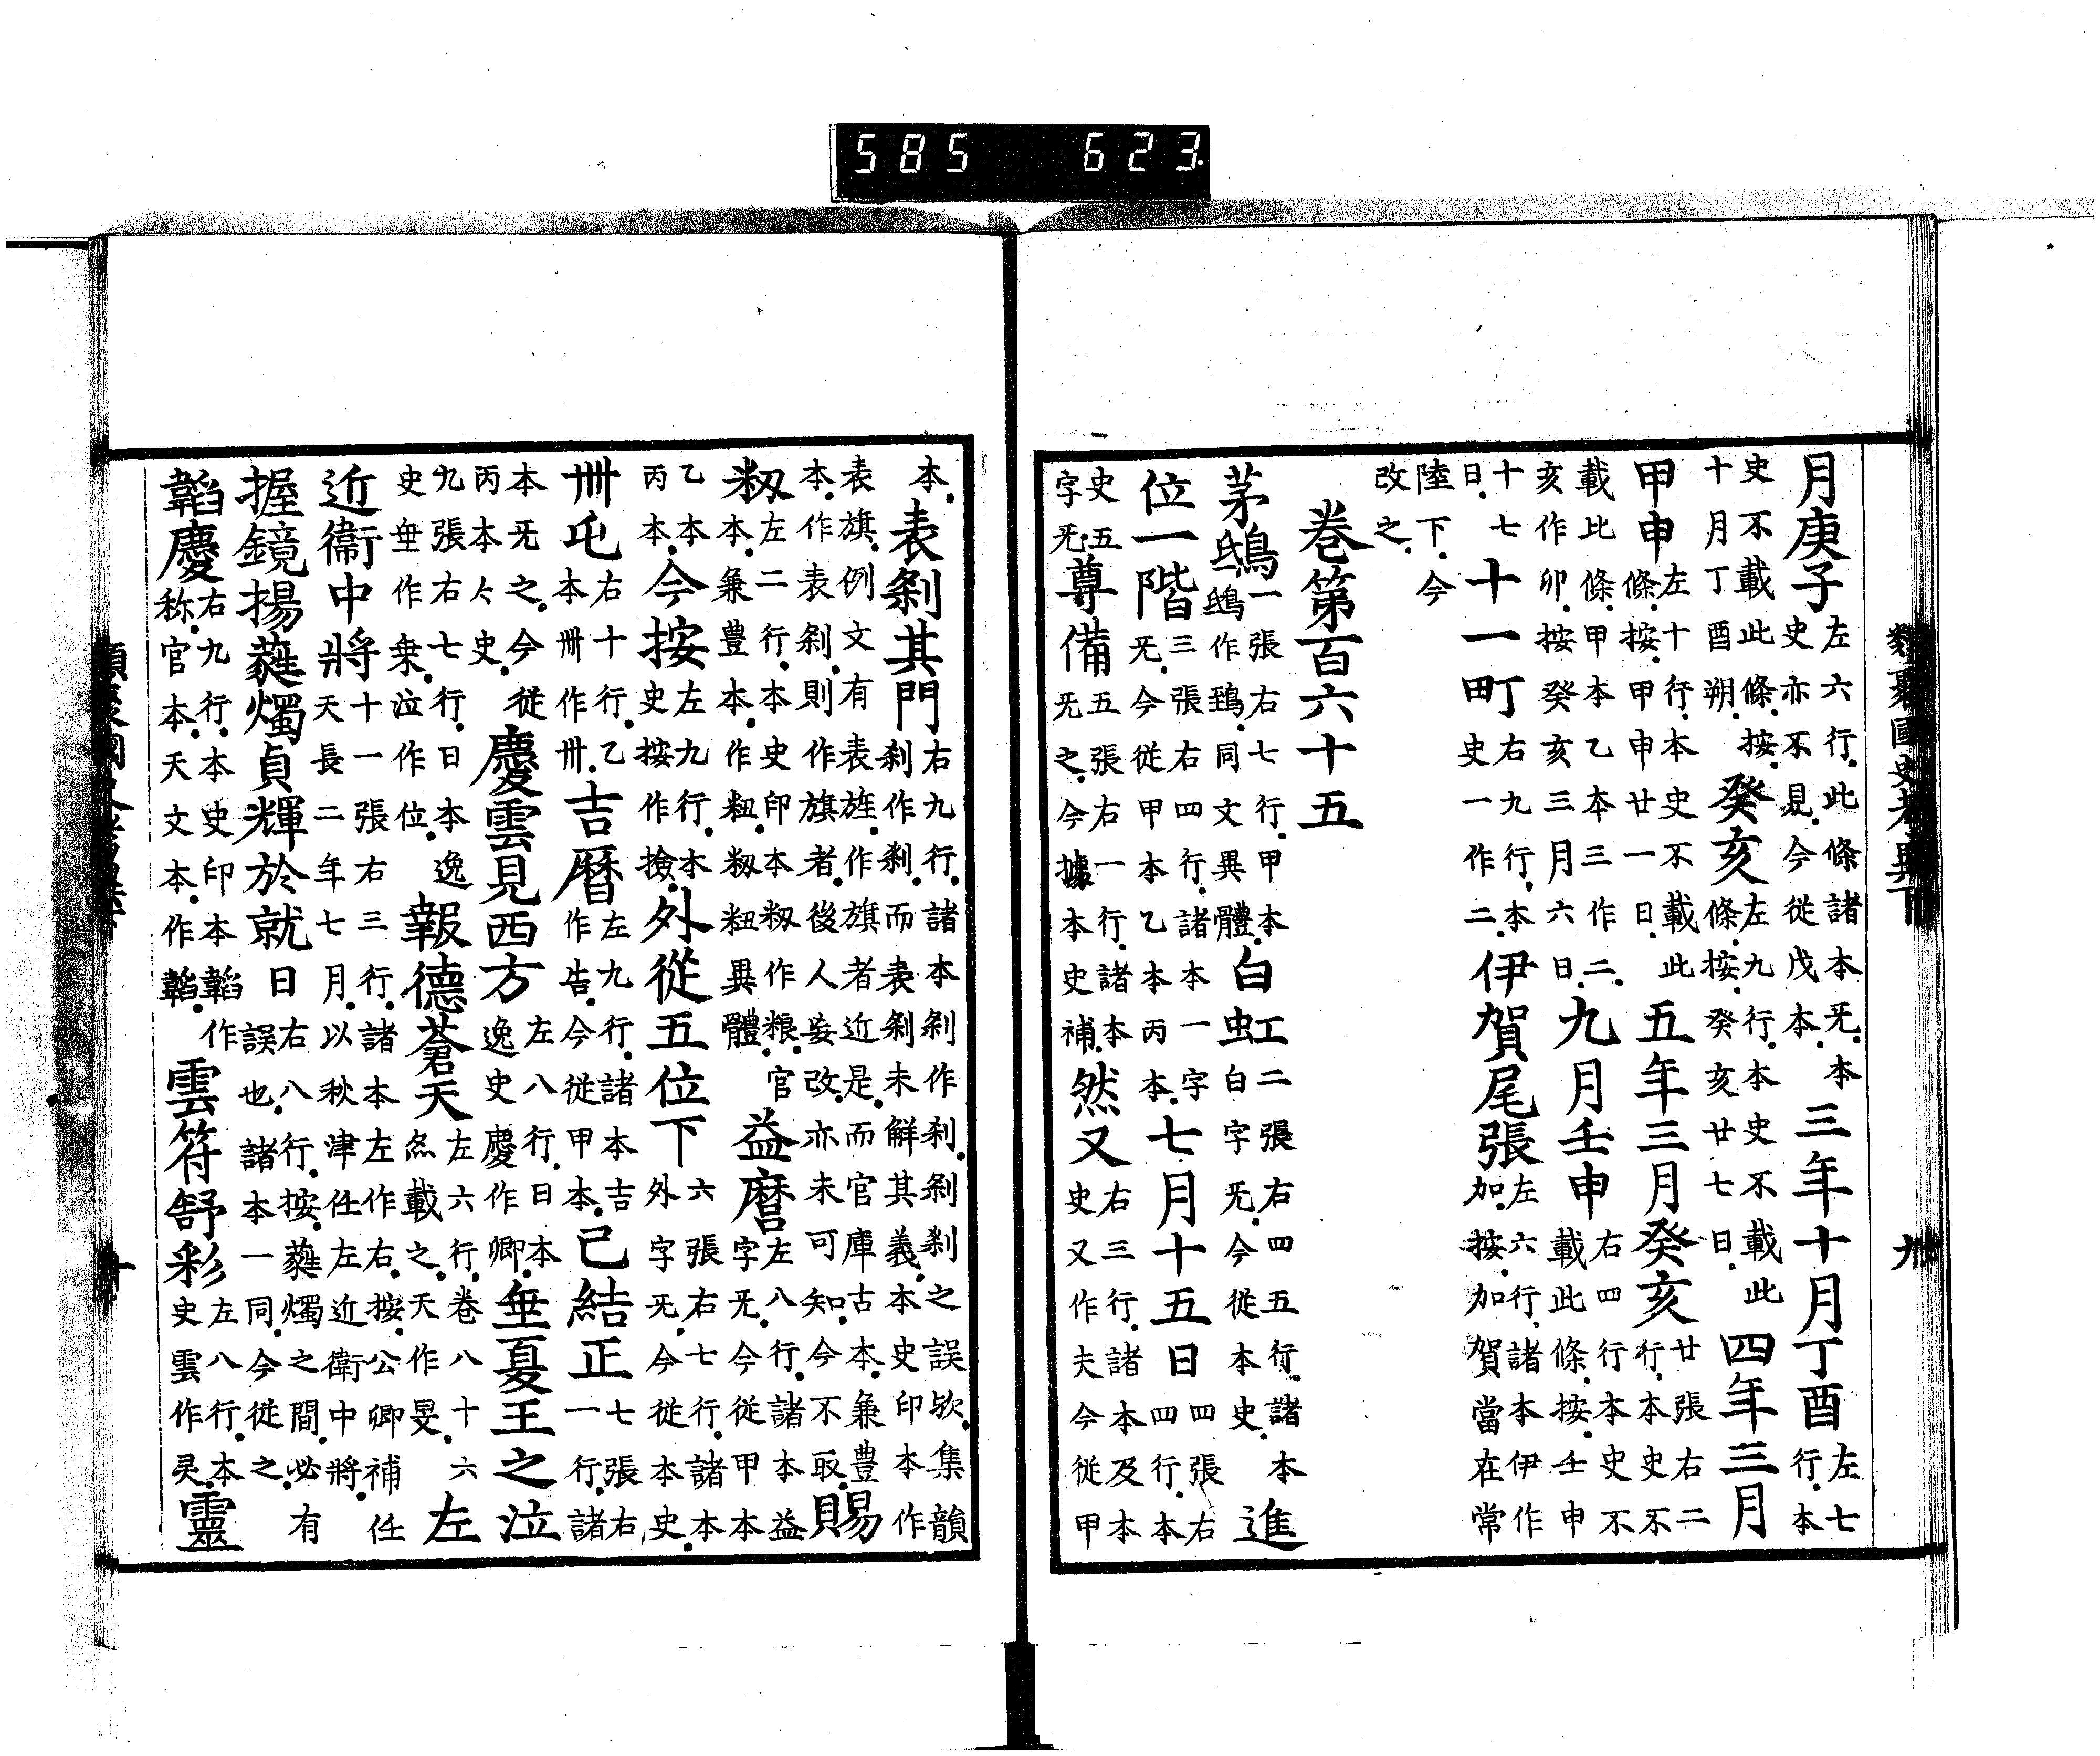 類聚國史考異下　九
月庚子左六行此條諸本旡本史亦不見今從戊本三年十月丁酉左七行本
史不載此條按十月丁酉朔癸亥左九行本史不載此條按癸亥廿七日四年三月
甲申左十行本史不載此條按甲申廿一日五年三月癸亥廿張右二行本史不
載比條甲本乙本三作二亥作卯按癸亥三月六日九月壬申右四行本史不載此條按壬申
十七日十一町右九行本史一作二伊賀尾張左六行諸本伊作加按加賀當在常
陸下今改之
卷第百六十五
茅鴟一張右七行甲本鴟作鵄同文異體白虹二張右四五行諸本白字旡今從本史進
位一階三張右四行諸本一字旡今從甲本乙本丙本七月十五日四張右四行本
史五字旡尊備五張右一行諸本旡之今據本史補然又右三行諸本及本史又作夫今從甲
本表剎其門右九行諸本剎作刹剎刹之誤欤集韻刹作剎而表剎未解其義本史印本作
表旗例文有表旌作旗者近是而官庫古本兼豊本作表剎則作旗者後人妄改亦未可知今不取賜
籾左二行本史印本籾作粮官本兼豊本作粈籾粈異體益麿左八行諸本益字旡今從甲本
乙本丙本今按左九行本史按作撿外從五位下六張右七行諸本外字旡今從本史
卌屯右十行乙本卌作卅吉曆左九行諸本吉作告今從甲本己結正七張右一行諸
本旡之今從丙本々史慶雲見西方左八行日本逸史慶作卿垂夏王之泣
九張右七行日本逸史垂作乗泣作位報德蒼天左六行卷八十六載之天作旻左
近衞中將十一張右三行諸本左作右按公卿補任天長二年七月以秋津任左近衛中將
握鏡揚蕤燭貞輝於就日右八行按蕤燭之間必有誤也諸本一同今從之
韜慶右九行本史印本韜作称官本天文本作韜雲符舒彩左八行本史雲作灵靈